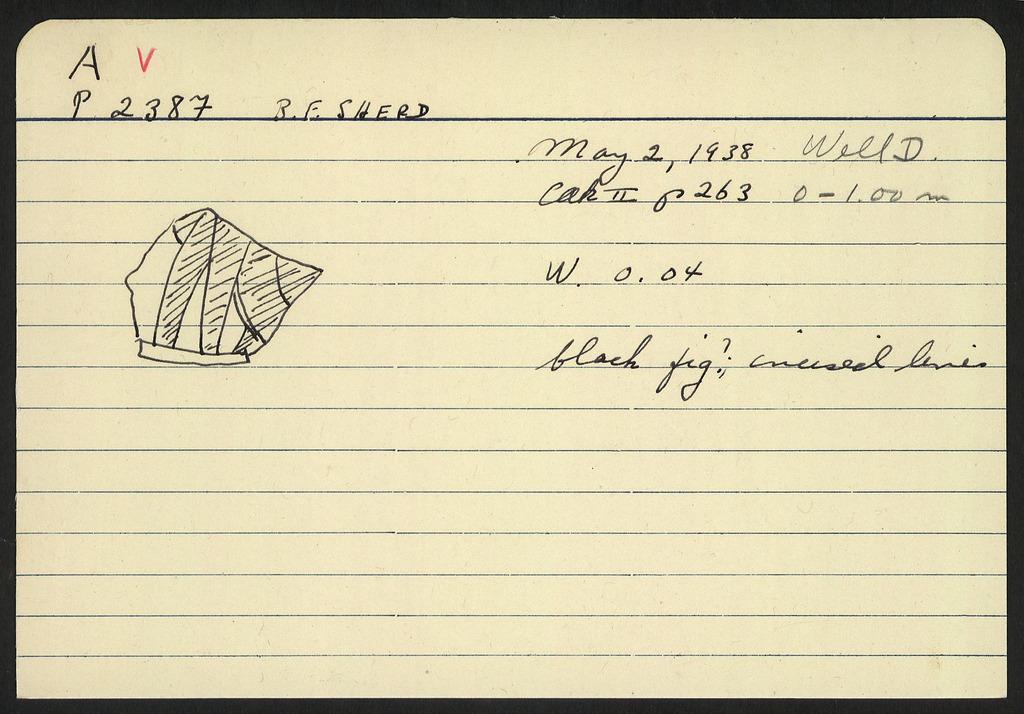 A V
P 2387 B.F. SHERD
May 2, 1938 Well D.
II p 263 0-1.00 m
W. 0.04
black fig?; incised lines